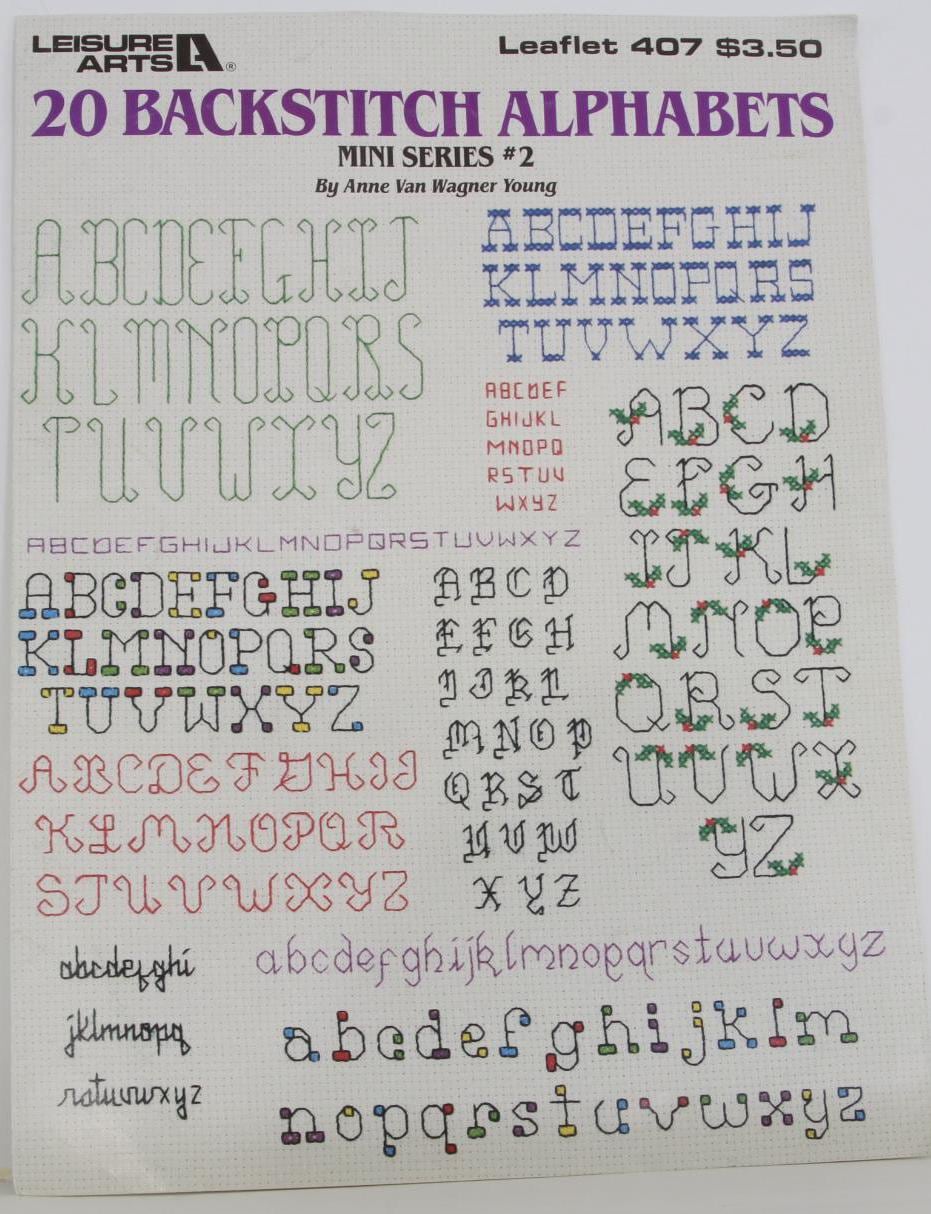 LEISURE ARTS ®
Leaflet 407 $3.50
20 BACKSTITCH ALPHABETS
MINI SERIES #2
By Anne Van Wagner Young
ABCDEFGHIJ
KLMNOPQRS
TUVWXYZ
ABCDEFGHIJ
KLMNOPQRS
TUVWXYZ
ABCDEF
GHIJKL
MNOPQ
RSTUV
WXYZ
ABCD
EFGH
IJKL
MNOP
QRST
UVWX
YZ
ABCDEFGHIJKLMNOPQRSTUVWXYZ
ABCDEFGHIJ
KLMNOPQRS
TUVWXYZ
ABCD
EFGH
IJKL
MNOP
QRST
UVW
XYZ
ABCDEFGHIJ
KLMNOPQR
STUVWXYZ
abcdefghi
jklmnopq
rstuvwxyz
abcdefghijklmnopqrstuvwxyz
abcdefghijklm
nopqrstuvwxyz